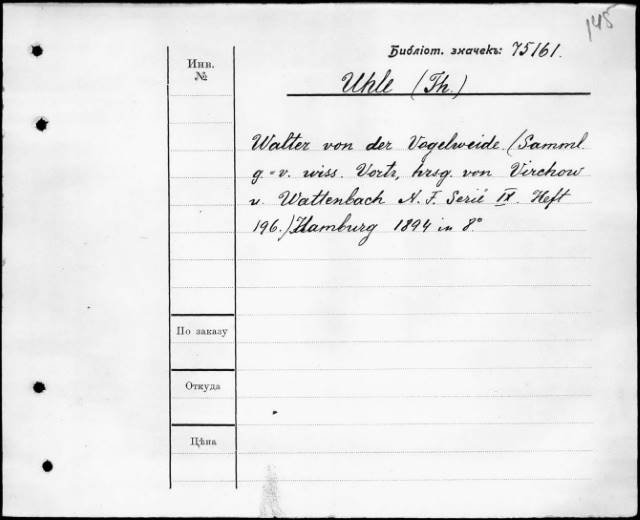 145
Библіот. значекъ: 75161.
Инв.
№
Uhle (Th.)
Walter von der Vogelweide. (Samml
g. v. wiss. Vortr, hrsg. von Virchow
u. Wattenbach N. F. Serie IX. Heft
196.) Hamburg 1894 in 8°
По заказу
Откуда
Цѣна